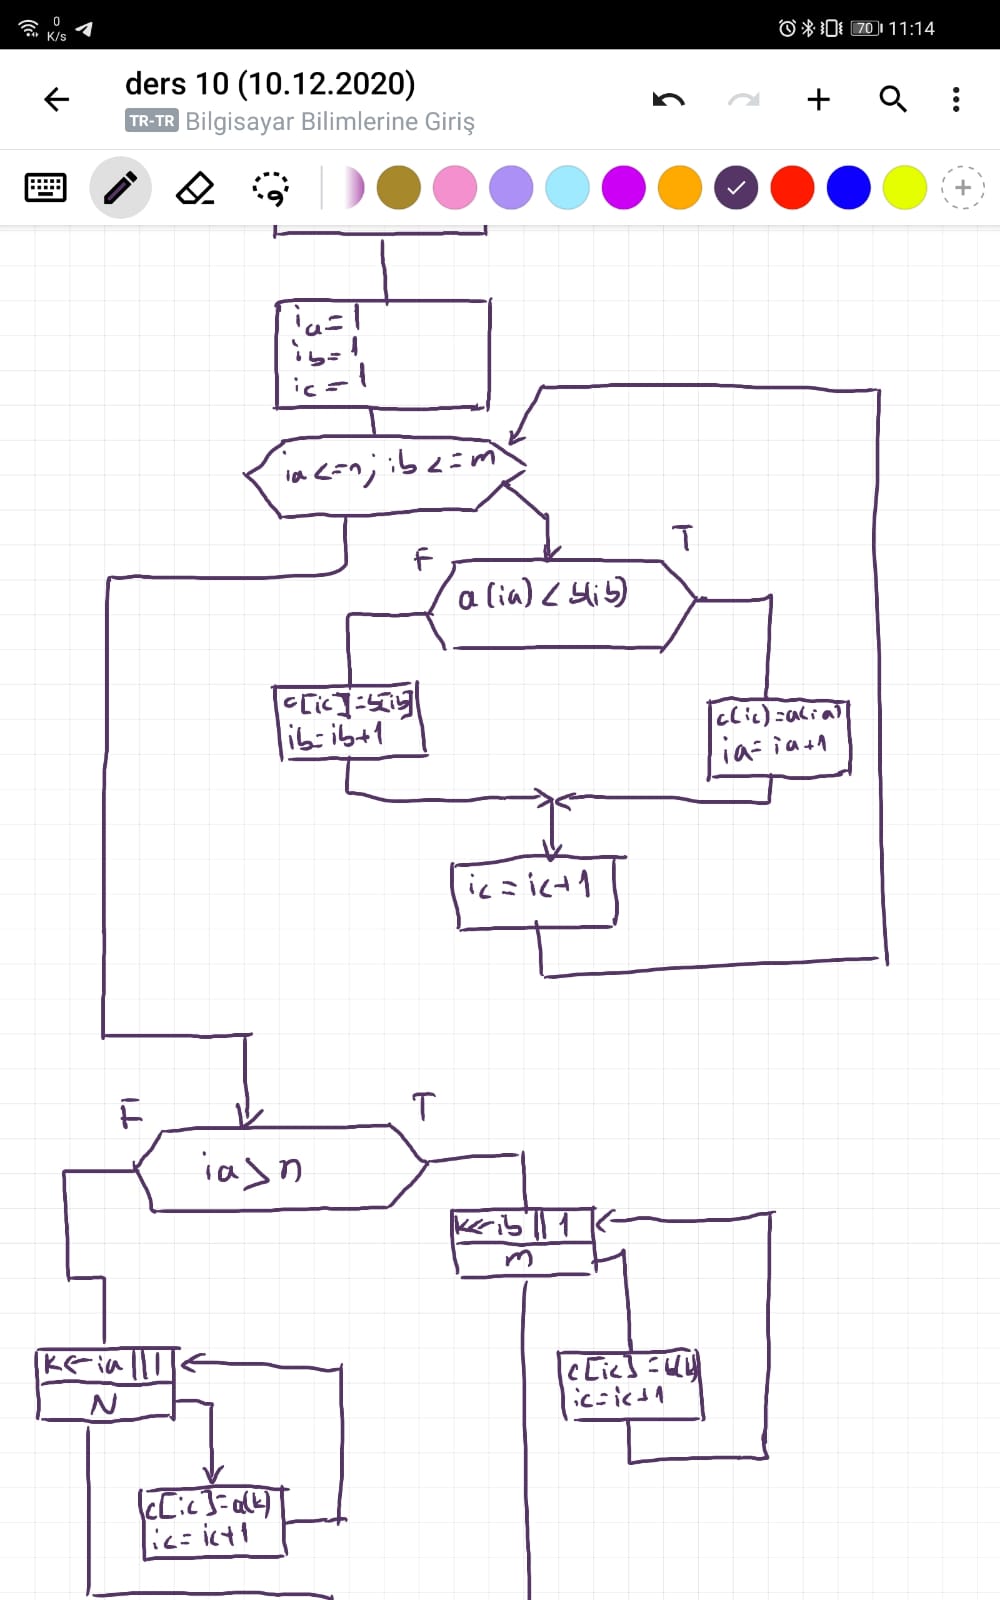 0
K/s
70 11:14
ders 10 (10.12.2020)
TR-TR Bilgisayar Bilimlerine Giriş
ia=1
ib=1
ic=1
ia<=n; ib<=m
F
T
a(ia) < b(ib)
c[ic]=b[ib]
ib=ib+1
c(ic)=a(ia)
ia=ia+1
ic=ic+1
F
T
ia>n
k←ib || 1
m
k←ia || 1
N
c[ic]=b(k)
ic=ic+1
c[ic]=a(k)
ic=ic+1